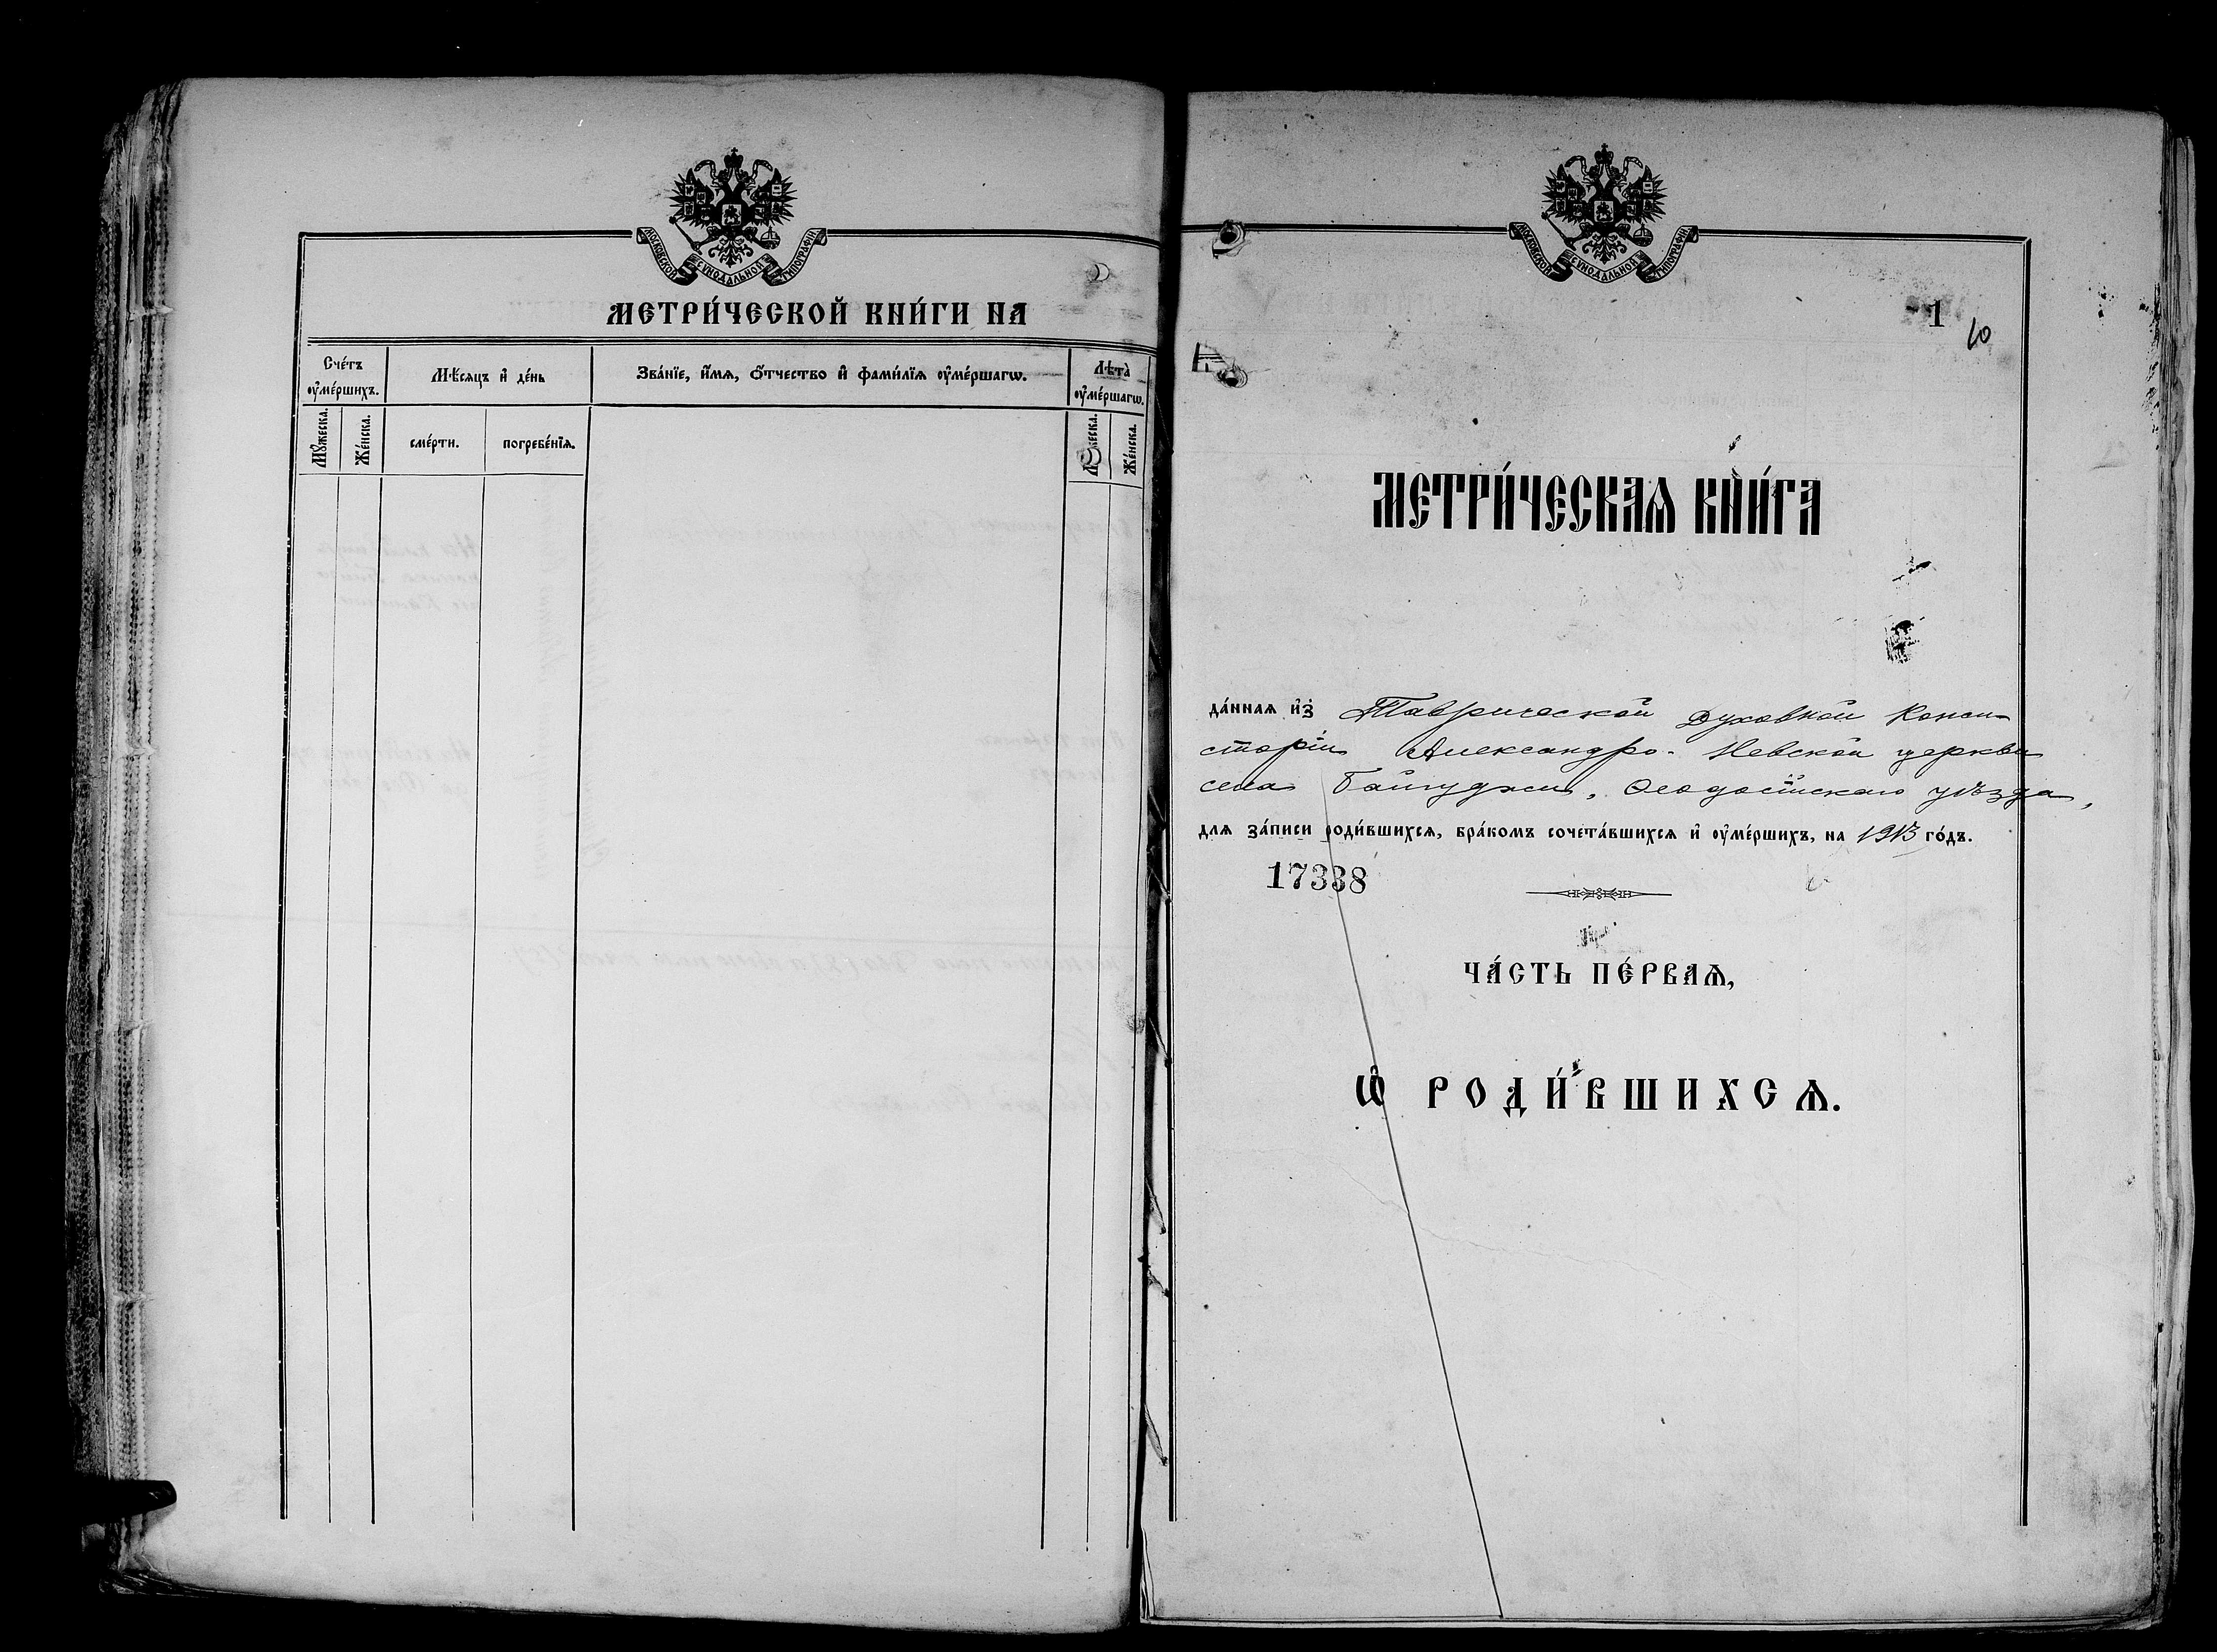 МОСКОВСКОЙ СѴНОДАЛЬНОЙ ТИПОГРАФІИ
МЕТРИ́ЧЕСКОЙ КНИ́ГИ НА
Сче́тъ ᲂу҆ме́ршихъ.
Мѣ́сяцъ и҆ де́нь
Зва́нїе, и҆́мѧ, ѻ҆́тчество и҆ фами́лїѧ ᲂу҆ме́ршагѡ.
Лѣта̀ ᲂу҆ме́ршагѡ.
Мꙋ́жеска.
Же́нска.
сме́рти.
погребе́нїѧ.
Же́нска.
МОСКОВСКОЙ СѴНОДАЛЬНОЙ ТИПОГРАФІИ
1
10
МЕТРИ́ЧЕСКАѦ КНИ́ГА
да́ннаѧ и҆з̾ Таврической Духовной Конси-
сторіи Александро-Невской церкви
села Байгуджи, Ѳеодосійскаго уѣзда,
для за́писи роди́вшихсѧ, бра́комъ сочета́вшихсѧ и҆ ᲂу҆ме́ршихъ, на 1913 го́дъ.
17338
ЧА́СТЬ ПЕ́РВАѦ,
Ѡ҆ РОДИ́ВШИХСѦ.